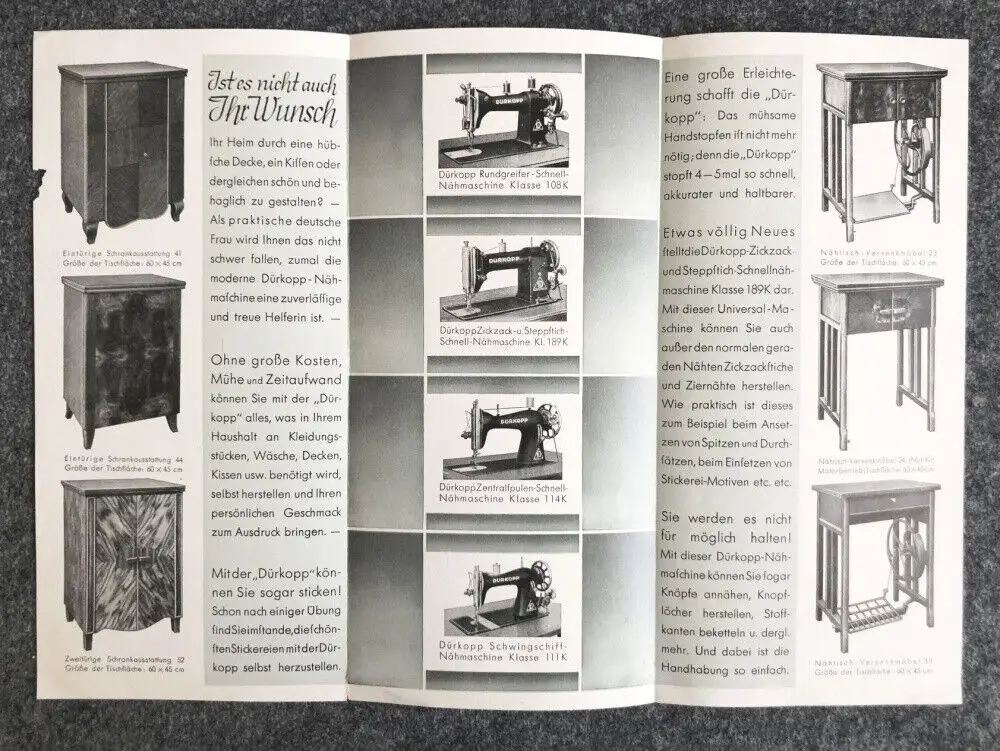 Eintürige Schrankausstattung 41
Größe der Tischfläche: 60 × 45 cm
Eintürige Schrankausstattung 44
Größe der Tischfläche: 60 × 45 cm
Zweitürige Schrankausstattung 52
Größe der Tischfläche: 60 × 45 cm
Ist es nicht auch
Ihr Wunsch
Ihr Heim durch eine hüb-
ſche Decke, ein Kiſſen oder
dergleichen schön und be-
haglich zu gestalten? —
Als praktische deutsche
Frau wird Ihnen das nicht
schwer fallen, zumal die
moderne Dürkopp-Näh-
maſchine eine zuverläſſige
und treue Helferin ist. —
Ohne große Kosten,
Mühe und Zeitaufwand
können Sie mit der „Dür-
kopp" alles, was in Ihrem
Haushalt an Kleidungs-
stücken, Wäsche, Decken,
Kissen usw. benötigt wird,
selbst herstellen und Ihren
persönlichen Geschmack
zum Ausdruck bringen. —
Mit der „Dürkopp" kön-
nen Sie sogar sticken!
Schon nach einiger Übung
sind Sie imstande, die schön-
ſten Stickereien mit der Dür-
kopp selbst herzustellen.
DÜRKOPP
Dürkopp Rundgreifer-Schnell-
Nähmaschine Klasse 108K
DÜRKOPP
Dürkopp Zickzack-u. Steppſtich-
Schnell-Nähmaschine Kl. 189K
DÜRKOPP
Dürkopp Zentralſpulen-Schnell-
Nähmaschine Klasse 114K
DÜRKOPP
Dürkopp Schwingschiff-
Nähmaschine Klasse 111K
Eine große Erleichte-
rung schafft die „Dür-
kopp": Das mühsame
Handstopfen iſt nicht mehr
nötig; denn die „Dürkopp"
stopft 4—5mal so schnell,
akkurater und haltbarer.
Etwas völlig Neues
ſtellt die Dürkopp-Zickzack-
und Steppſtich-Schnellnäh-
maschine Klasse 189K dar.
Mit dieser Universal-Ma-
schine können Sie auch
außer den normalen gera-
den Nähten Zickzackſtiche
und Ziernähte herstellen.
Wie praktisch ist dieses
zum Beispiel beim Anset-
zen von Spitzen und Durch-
ſätzen, beim Einſetzen von
Stickerei-Motiven etc. etc.
Sie werden es nicht
für möglich halten!
Mit dieser Dürkopp-Näh-
maſchine können Sie ſogar
Knöpfe annähen, Knopf-
löcher herstellen, Stoff-
kanten beketteln u. dergl.
mehr. Und dabei ist die
Handhabung so einfach.
Nähtisch-Versenkmöbel 23
Größe der Tischfläche: 60 × 45 cm
Nähtisch-Versenkmöbel 24
Nähtisch-Versenkmöbel
Größe der Tischfläche: 60 × 45 cm